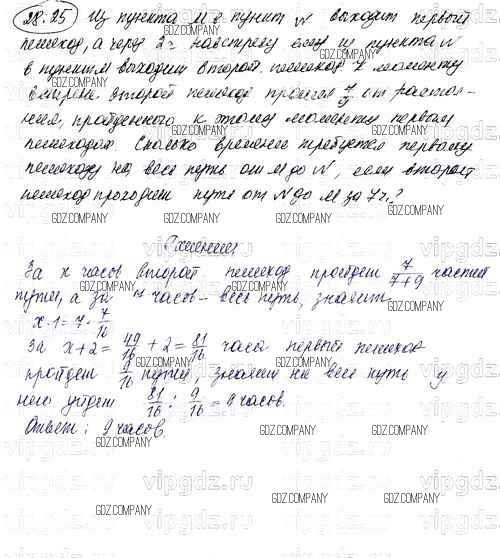 28.25 Из пункта M в пункт N выходит первый
пешеход, а через 2ч навстречу ему из пункта N
в пункт M выходит второй пешеход. К моменту
встречи второй пешеход прошел 7/9 от расстоя-
ния, пройденного к этому моменту первым
пешеходом. Сколько времени требуется первому
пешеходу на весь путь от M до N, если второй
пешеход проходит путь от N до M за 7ч?
Решение
За x часов второй пешеход пройдет 7/(7+9) частей
пути, а за 7 часов - весь путь, значит
x·1=7·7/16
За x+2 = 49/16 + 2 = 81/16 часа первый пешеход
пройдет 9/16 пути, значит на весь путь у
него уйдет 81/16 : 9/16 = 9 часов.
Ответ: 9 часов.
GDZ.COMPANY
vipgdz.ru